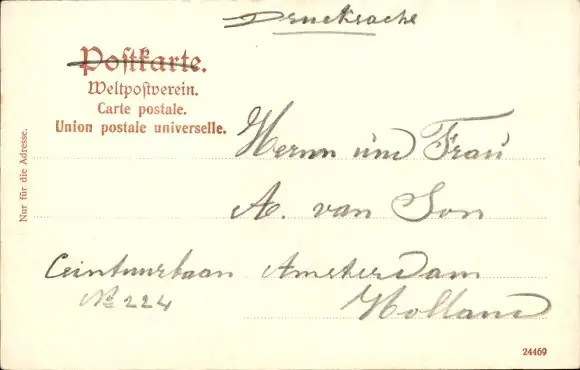 Drucksache
Postkarte.
Weltpostverein.
Carte postale.
Union postale universelle.
Nur für die Adresse.
Herrn und Frau
A. van Son
Ceintuurbaan Amsterdam
No 224 Holland
24469